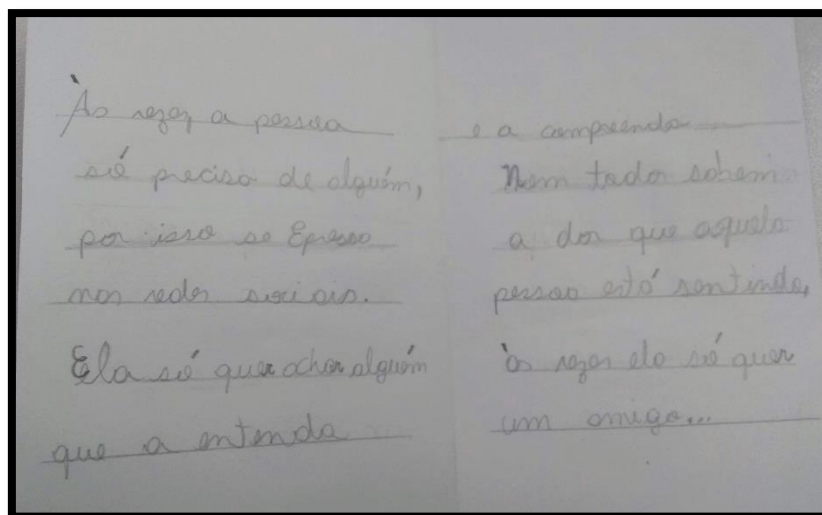 Às vezes a pessoa
só precisa de alguém,
por isso se Epressa
nas redes sociais.
Ela só quer achar alguém
que a entenda
e a compreenda
Nem todos sabem
a dor que aquela
pessoa está sentindo,
às vezes ela só quer
um amigo...